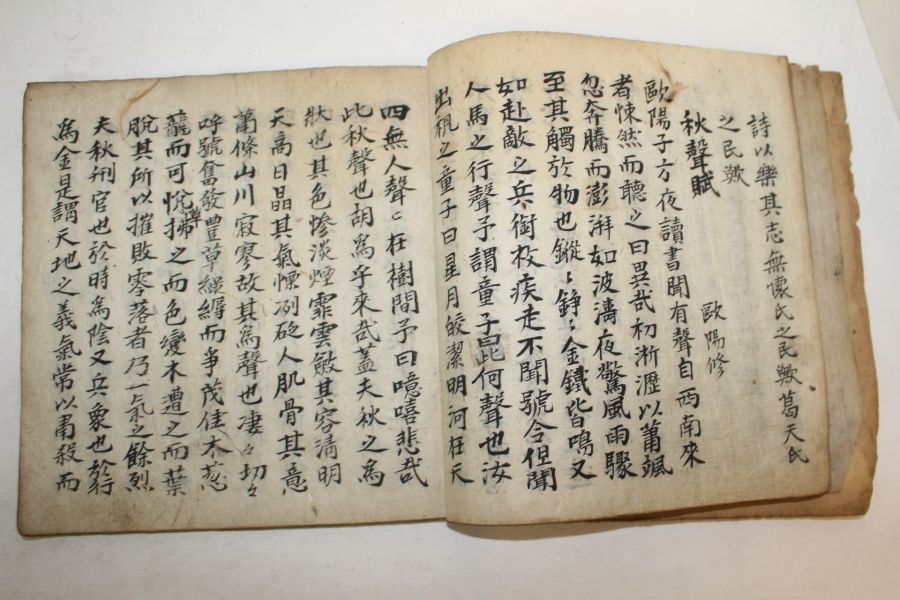 詩以樂其志無懷氏之民歟葛天氏
之民歟
秋聲賦 歐陽修
歐陽子方夜讀書聞有聲自西南來
者悚然而聽之曰異哉初淅瀝以蕭颯
忽奔騰而澎湃如波濤夜驚風雨驟
至其觸於物也鏦〻錚〻金鐵皆鳴又
如赴敵之兵銜枚疾走不聞號令但聞
人馬之行聲予謂童子此何聲也汝
出視之童子曰星月皎潔明河在天
四無人聲〻在樹間予曰噫嘻悲哉
此秋聲也胡爲乎來哉蓋夫秋之爲
狀也其色慘淡煙霏雲斂其容淸明
天高日晶其氣慄冽砭人肌骨其意
蕭條山川寂寥故其爲聲也凄々切々
呼號奮發豊草綠縟而爭茂佳木葱
蘢而可悅草拂之而色變木遭之而葉
脫其所以摧敗零落者乃一氣之餘烈
夫秋刑官也於時爲陰又兵象也於行
爲金是謂天地之義氣常以肅殺而